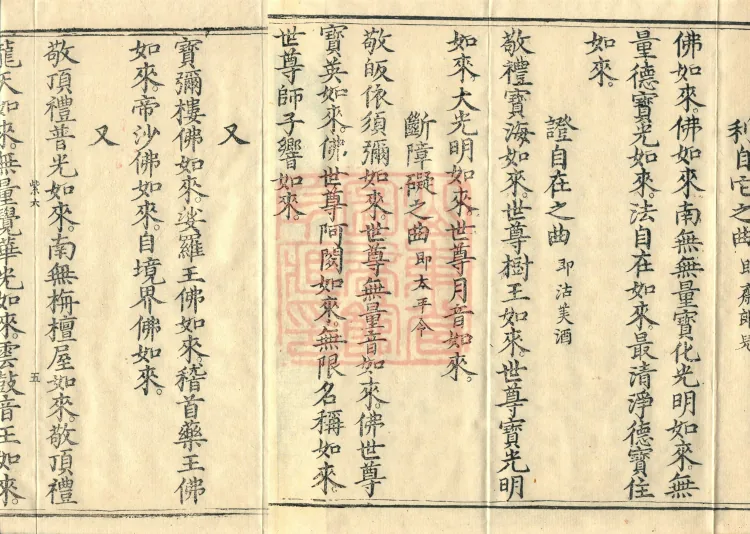 佛如來。佛如來。南無無量寶化光明如來。無
量德寶光如來。法自在如來。最清淨德寶住
如來。
證自在之曲 即沽美酒
敬禮寶海如來。世尊樹王如來。世尊寶光明
如來。大光明如來。世尊月音如來。
斷障礙之曲 即太平令
敬皈依須彌如來。世尊無量音如來。佛世尊
寶英如來。佛世尊阿閦如來。無限名稱如來。
世尊師子響如來。
又
寶彌樓佛如來。娑羅王佛如來。稽首藥王佛
如來。帝沙佛如來。自境界佛如來。
又
敬頂禮普光如來。南無栴檀屋如來。敬頂禮
紫六
五
龍天如來。無量覺華光如來。雲鼓音王如來。